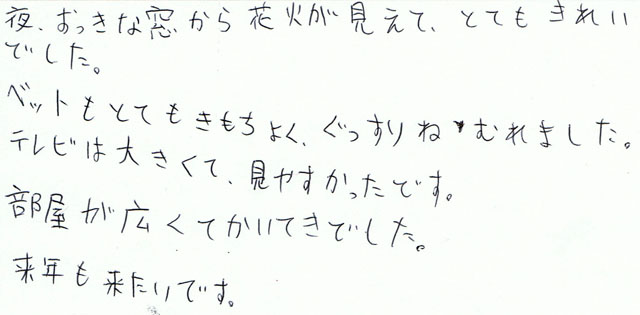 夜、おっきな窓から花火が見えて、とてもきれい
でした。
ベットもとてもきもちよく、ぐっすりねむれました。
テレビは大きくて、見やすかったです。
部屋が広くてかいてきでした。
来年も来たいです。